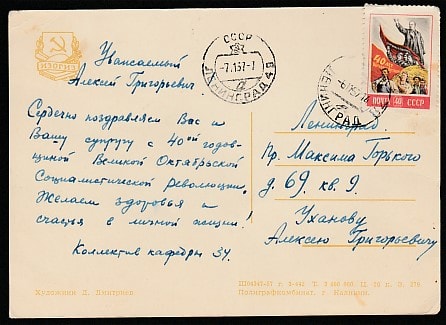 ИЗОГИЗ
Уважаемый
Алексей Григорьевич
Сердечно поздравляем Вас и
Вашу супругу с 40ой годов-
щиной Великой Октябрьской
Социалистической Революции.
Желаем здоровья и
счастья в личной жизни!
Коллектив кафедры 34.
Художник Д. Дмитриев
СССР
-7.1157-7
ЛЕНИНГРАД 49
а
ЛЕНИНГРАД
40
ПОЧТА 40 СССР
Ленинград
пр. Максима Горького
д. 69 кв. 9.
Уханову
Алексею Григорьевичу
Полиграфкомбинат, г. Калинин.